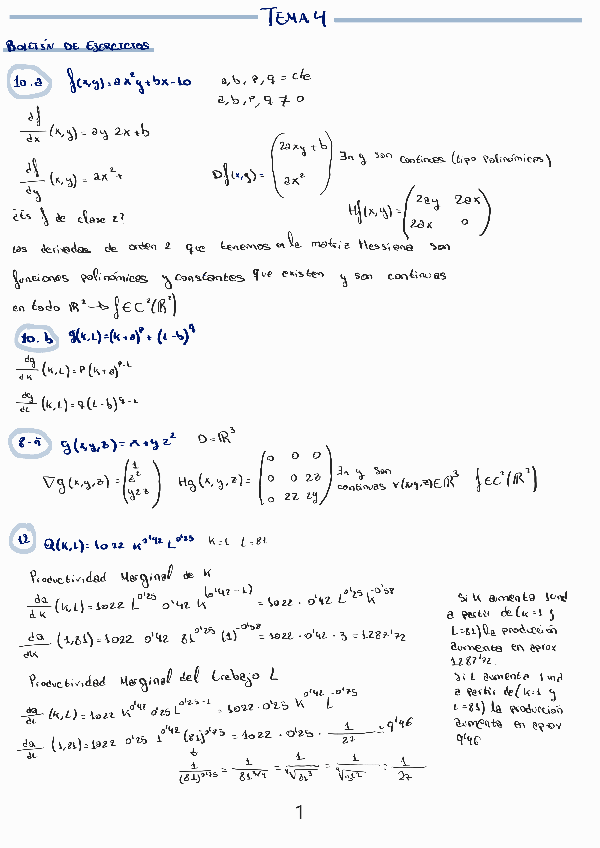 TEMA 4
BOLETÍN DE EJERCICIOS
10.a f(x,y)=ax²y+bx-10 a,b,p,q = cte
a,b,p,q ≠ 0
df/dx (x,y)= ay 2x+b
df/dy (x,y)= ax²+ Df(x,y)= (2axy+b / ax²) ∃n y son continuas (tipo polinómicas)
¿Es f de clase 2? Hf(x,y)= (2ay 2ax / 2ax 0)
Las derivadas de orden 2 que tenemos en la matriz Hessiana son
funciones polinómicas y constantes que existen y son continuas
en todo ℝ² → f∈C²(ℝ²)
10.b g(K,L)=(K+a)^p+(L-b)^q
dg/dK (K,L)=P(K+a)^p-1
dg/dL (K,L)=q(L-b)^q-1
8-ñ g(x,y,z)=x+yz² D=ℝ³
∇g(x,y,z)= (1 / z² / y2z) Hg(x,y,z)= (0 0 0 / 0 0 2z / 0 2z 2y) ∃n y son continuas ∀(x,y,z)∈ℝ³ f∈C²(ℝ²)
12 Q(K,L)=1022 K^0'42 L^0'25 K=1 L=81
Productividad Marginal de K
dQ/dK (K,L)=1022 L^0'25 0'42 K^(0'42-1) = 1022 · 0'42 L^0'25 K^-0'58
dQ/dK (1,81)=1022 0'42 81^0'25 (1)^-0'58 = 1022 · 0'42 · 3 = 1287'72
Si K aumenta 1 und
a partir de (K=1 y
L=81) la producción
aumenta en aprox
1287'72.
Productividad Marginal del trabajo L
dQ/dL (K,L)=1022 K^0'42 0'25 L^0'25-1 = 1022 · 0'25 K^0'42 L^-0'75
dQ/dL (1,81)=1022 0'25 1^0'42 (81)^0'75 = 1022 · 0'25 · 1/27 = 9'46
1/(81)^0'75 = 1/81^3/4 = 1/⁴√81³ = 1/ = 1/27
Si L aumenta 1 und
a partir de (K=1 y
L=81) la producción
aumenta en aprox
9'46
1